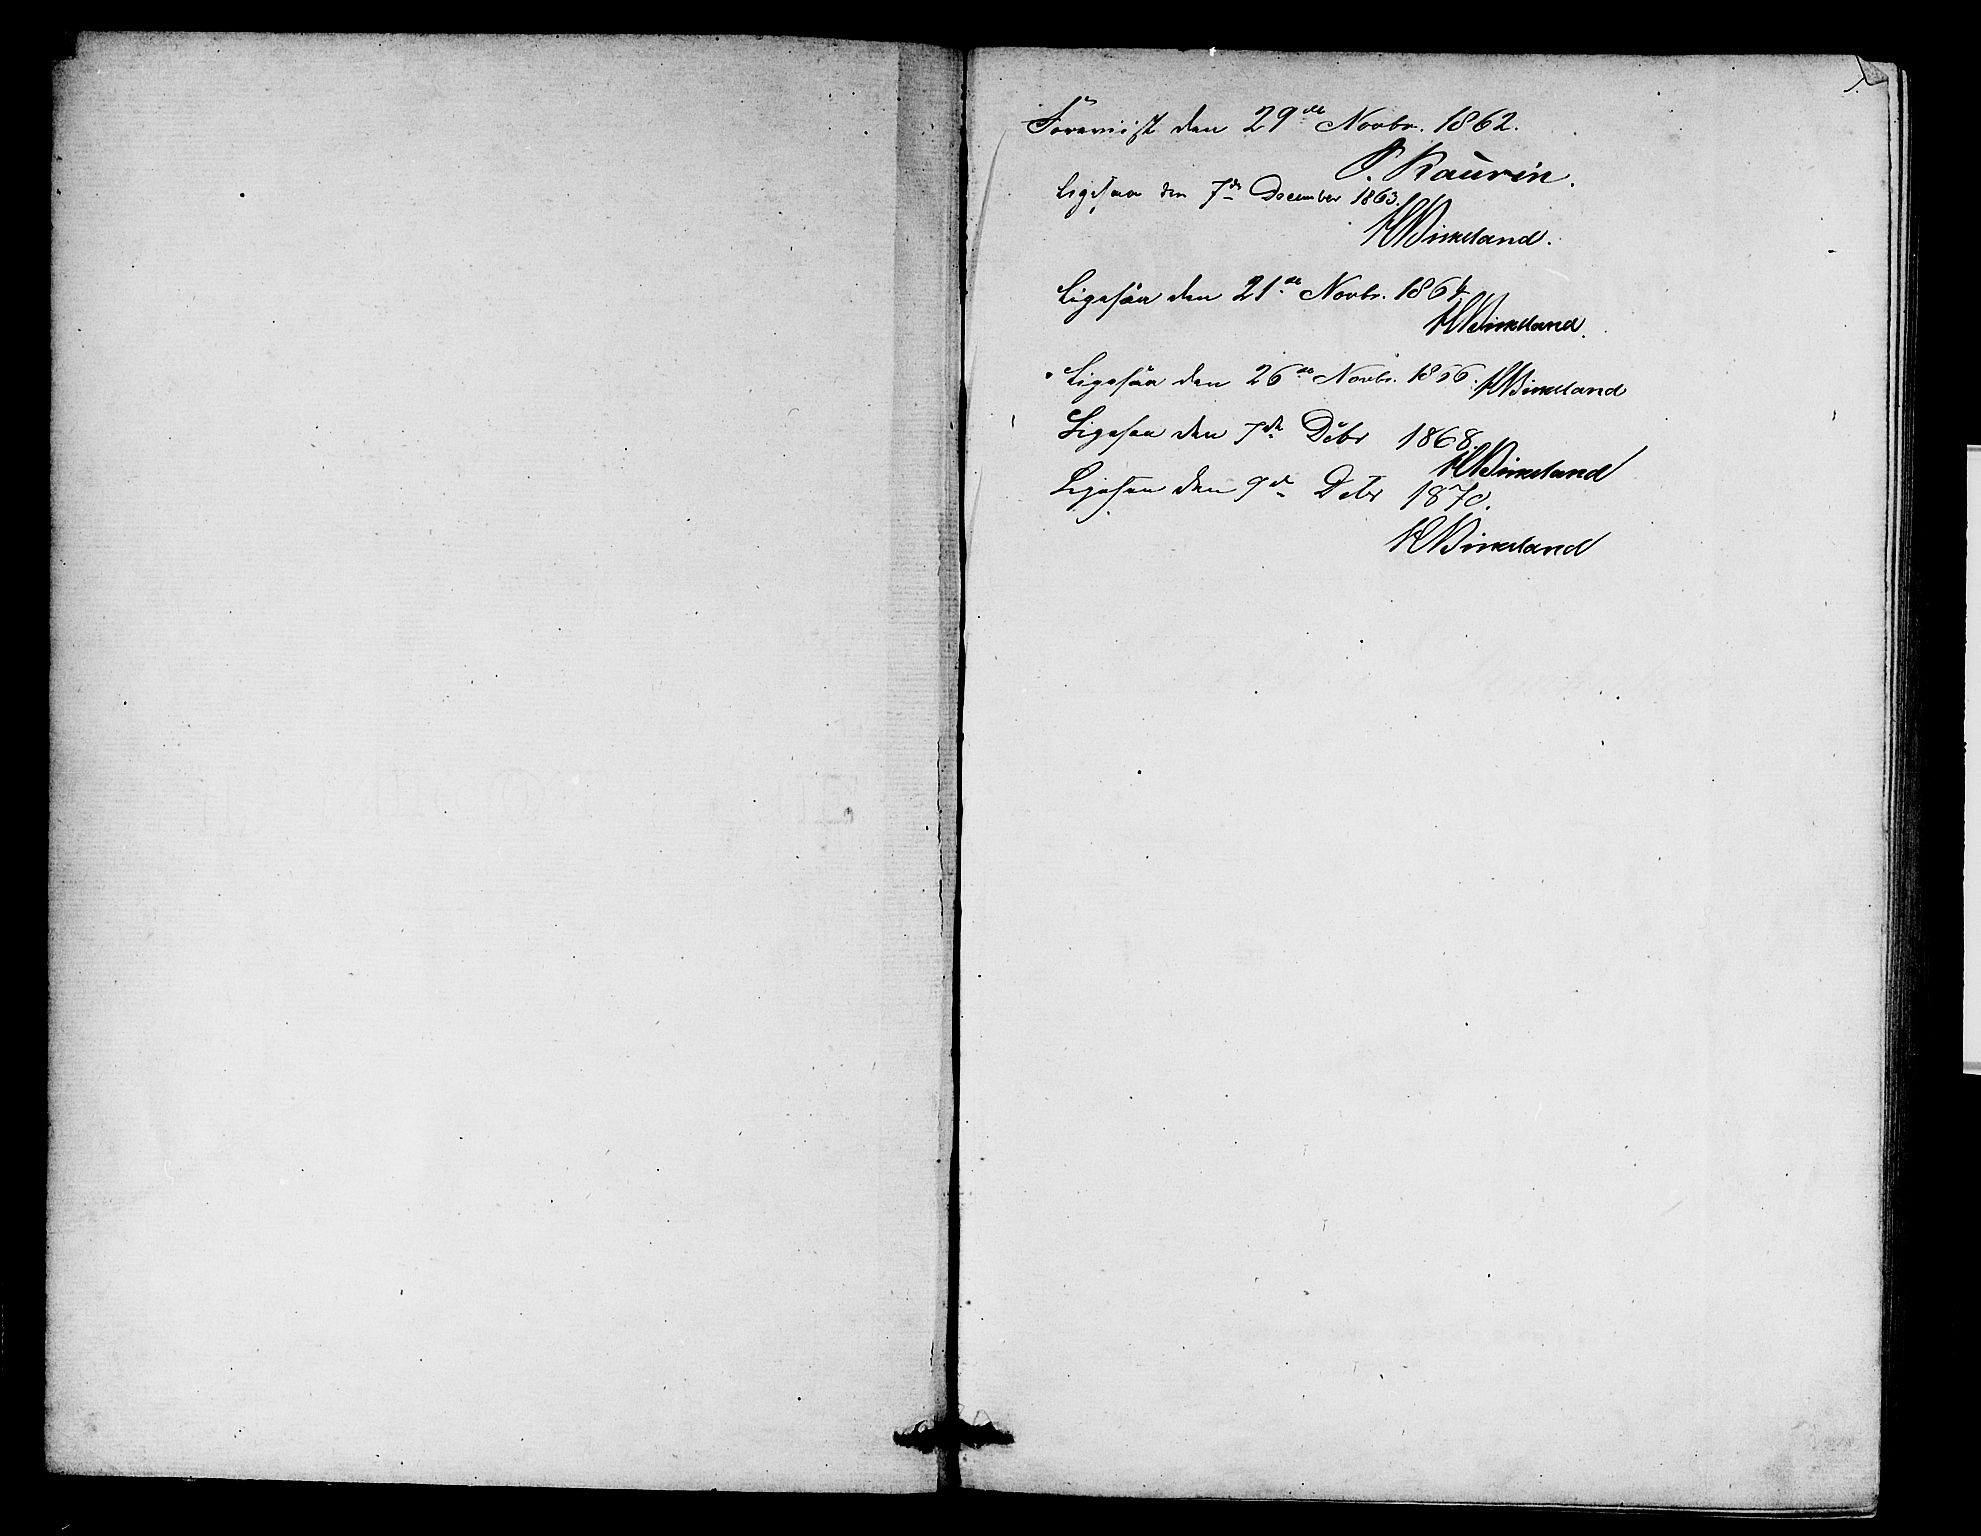 Foreviist den 29de Novbr. 1862.
P. Kaurin.
Ligesaa den 7de December 1863.
H Birkeland.
Ligesaa den 21de Novbr. 1864
H Birkeland.
Ligesaa den 26de Novbr. 1866. H Birkeland
Ligesaa den 7de Debr 1868.
H Birkeland
Ligesaa den 9de Debr 1870.
H Birkeland